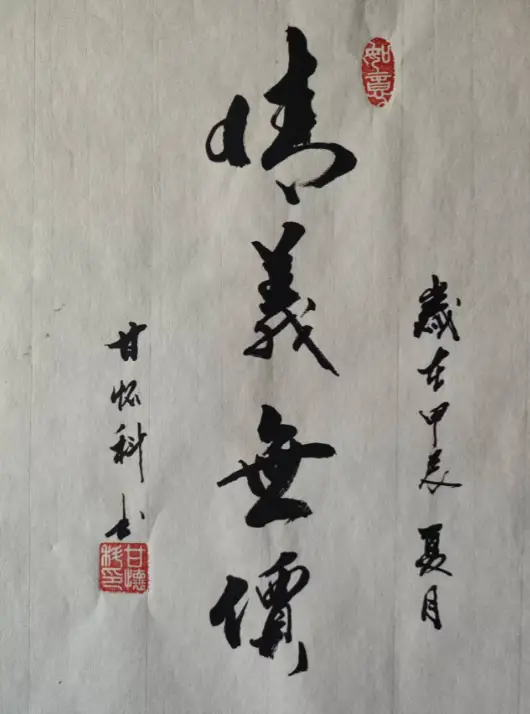 如意
歲在甲辰夏月
情義無價
甘怀科书
甘懷科印